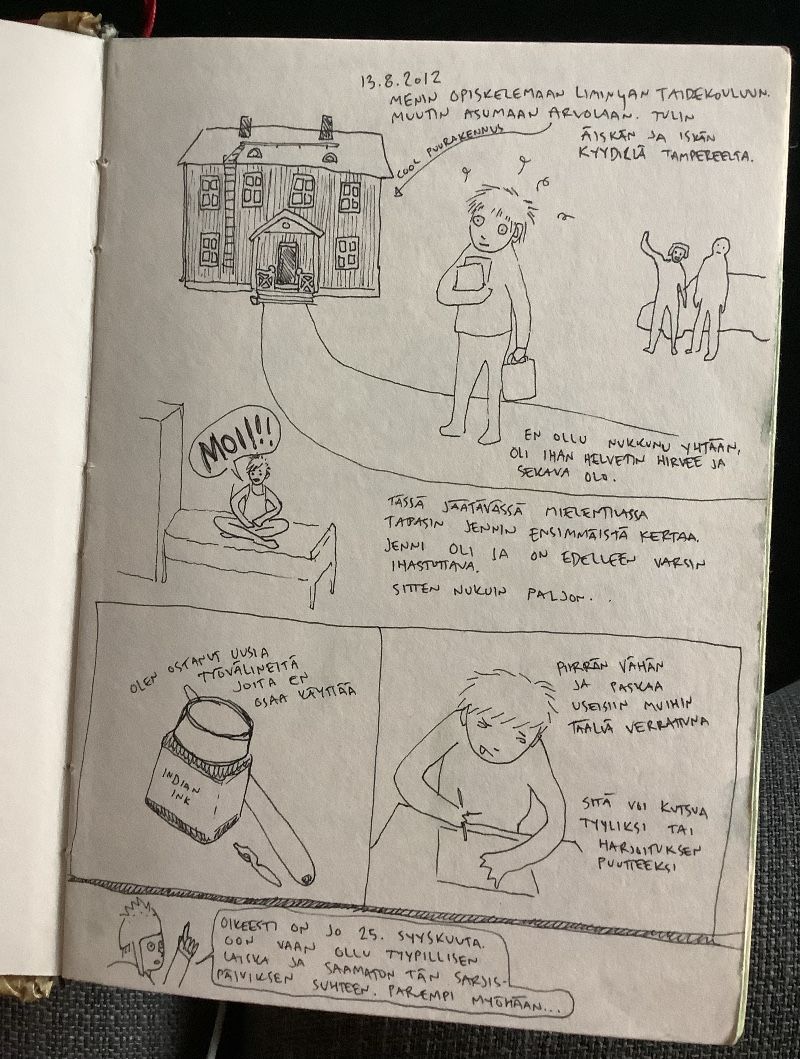 13.8.2012
MENIN OPISKELEMAAN LIMINGAN TAIDEKOULUUN.
MUUTIN ASUMAAN ARVOLAAN. TULIN
ÄISKÄN JA ISKÄN
KYYDILLÄ TAMPEREELTA.
COOL PUURAKENNUS
EN OLLU NUKKUNU YHTÄÄN,
OLI IHAN HELVETIN HIRVEE JA
SEKAVA OLO.
MOI!!!
TÄSSÄ JÄÄTÄVÄSSÄ MIELENTILASSA
TAPASIN JENNIN ENSIMMÄISTÄ KERTAA.
JENNI OLI JA ON EDELLEEN VARSIN
IHASTUTTAVA.
SITTEN NUKUIN PALJON...
OLEN OSTANUT UUSIA
TYÖVÄLINEITÄ
JOITA EN
OSAA KÄYTTÄÄ
INDIAN
INK
PIIRRÄN VÄHÄN
JA PASKAA
USEISIIN MUIHIN
TÄÄLLÄ VERRATTUNA
SITÄ VOI KUTSUA
TYYLIKSI TAI
HARJOITUKSEN
PUUTTEEKSI
OIKEESTI ON JO 25. SYYSKUUTA.
OON VAAN OLLU TYYPILLISEN
LAISKA JA SAAMATON TÄN SARJIS-
PÄIVIKSEN SUHTEEN. PAREMPI MYÖHÄÄN...